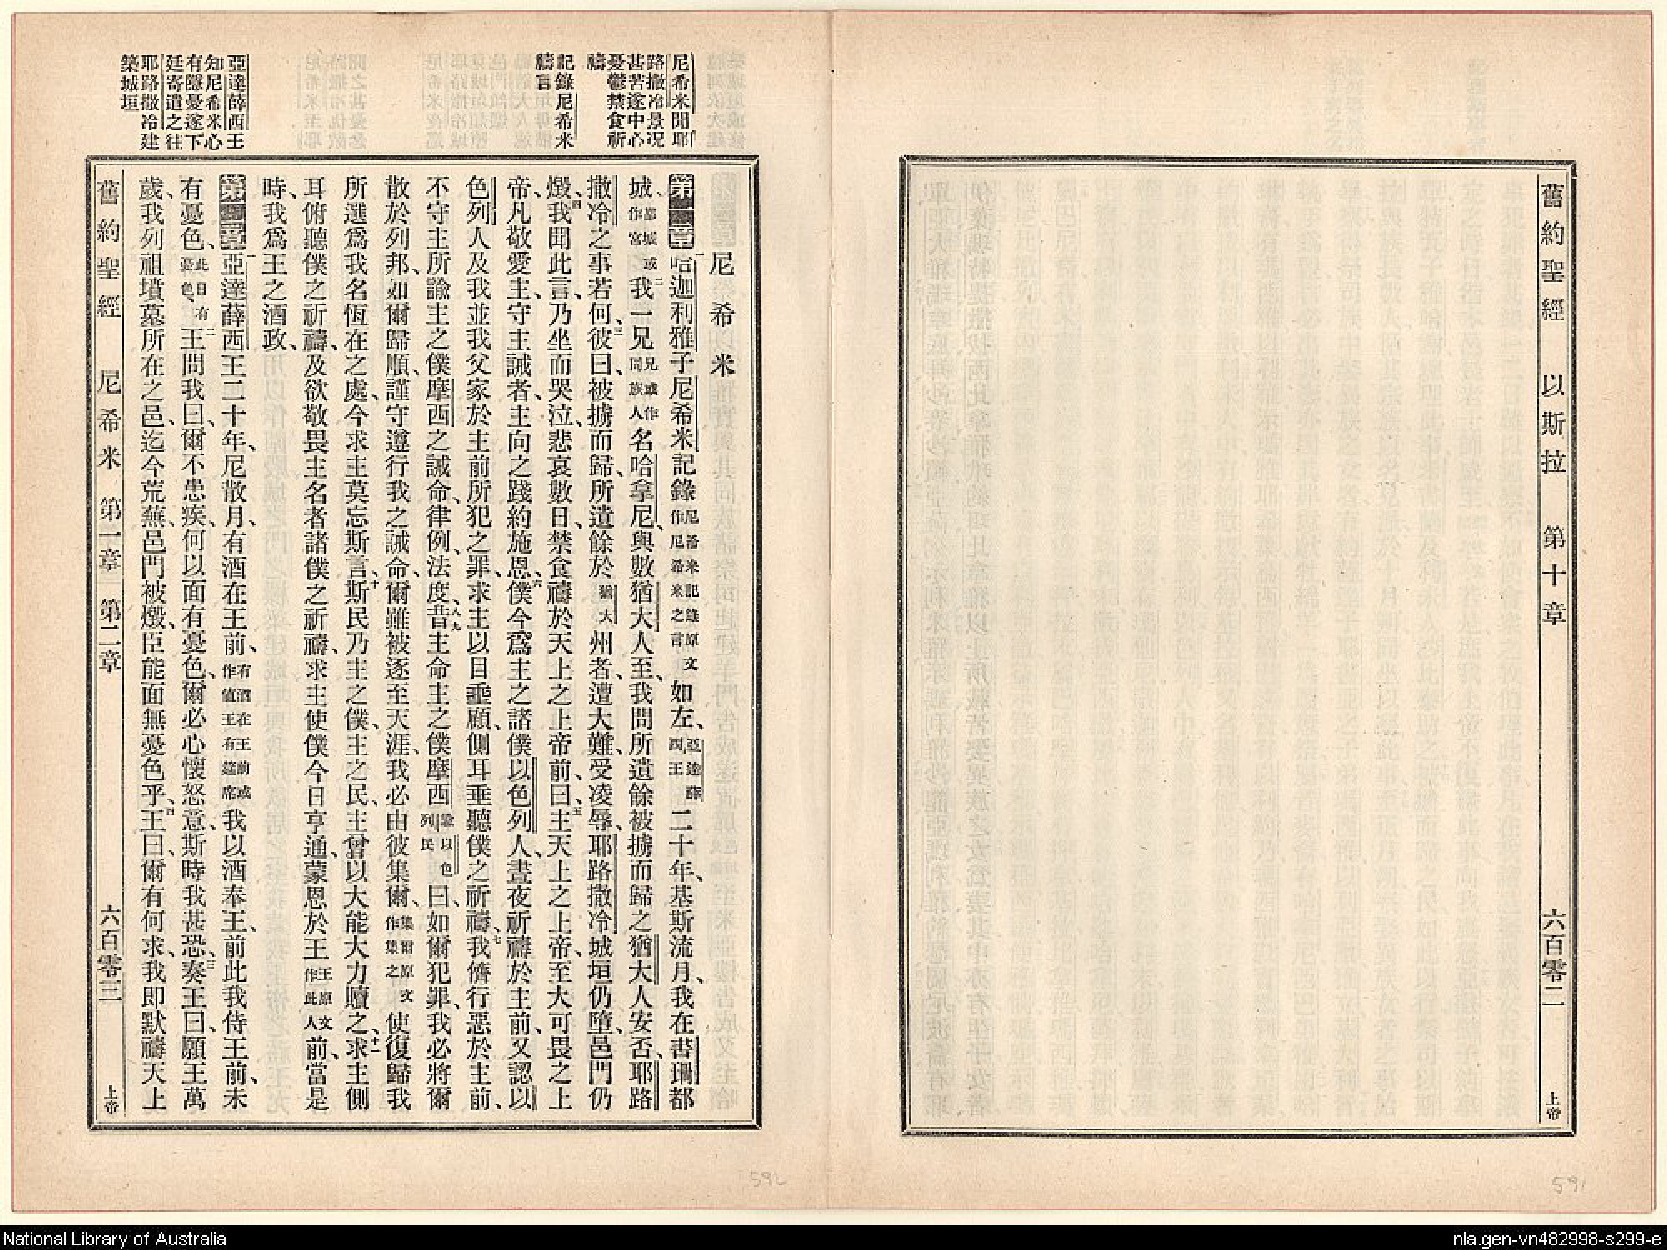 舊約聖經 以斯拉 第十章 六百零二 上帝
尼希米聞耶
路撒冷景況
甚苦遂中心
憂鬱禁食祈
禱
記錄尼希米
禱言
亞達薛西王
知尼希米心
有隱憂遂下
廷寄遣之往
耶路撒冷建
築城垣
尼希米
第一章 一哈迦利雅子尼希米記錄尼希米記錄原文作尼希米之言如左、亞達薛西王二十年、基斯流月、我在書珊都
城、都城或作宮二我一兄兄或作同族人名哈拿尼、與數猶大人至、我問所遺餘被擄而歸之猶大人安否、耶路
撒冷之事若何、三彼曰、被擄而歸、所遺餘於猶大州者、遭大難、受凌辱、耶路撒冷城垣仍墮、邑門仍
燬、四我聞此言、乃坐而哭泣、悲哀數日、禁食禱於天上之上帝前、曰、五主天上之上帝、至大可畏之上
帝、凡敬愛主、守主誡者、主向之踐約施恩、六僕今爲主之諸僕以色列人、晝夜祈禱於主前、又認以
色列人及我並我父家於主前所犯之罪、求主以目垂顧、側耳垂聽僕之祈禱、七我儕行惡於主前、
不守主所諭主之僕摩西之誡命、律例、法度、八九昔主命主之僕摩西諭以色列民曰、如爾犯罪、我必將爾
散於列邦、如爾歸順、謹守遵行我之誡命、爾雖被逐至天涯、我必由彼集爾、集爾原文作集之使復歸我
所選爲我名恆在之處、今求主莫忘斯言、十斯民乃主之僕、主之民、主曾以大能大力贖之、十一求主側
耳俯聽僕之祈禱、及欲敬畏主名者諸僕之祈禱、求主使僕今日亨通、蒙恩於王王原文作此人前、當是
時、我爲王之酒政、
第二章 一亞達薛西王二十年、尼散月、有酒在王前、有酒在王前或作値王有筵席我以酒奉王、前此我侍王前、未
有憂色、此日有憂色、二王問我曰、爾不患疾、何以面有憂色、爾必心懷怒意、斯時我甚恐、三奏王曰、願王萬
歲、我列祖墳墓所在之邑、迄今荒蕪、邑門被燬、臣能面無憂色乎、四王曰、爾有何求、我卽默禱天上
舊約聖經 尼希米 第一章 第二章 六百零三 上帝
592
591
National Library of Australia
nla.gen-vn482998-s299-e